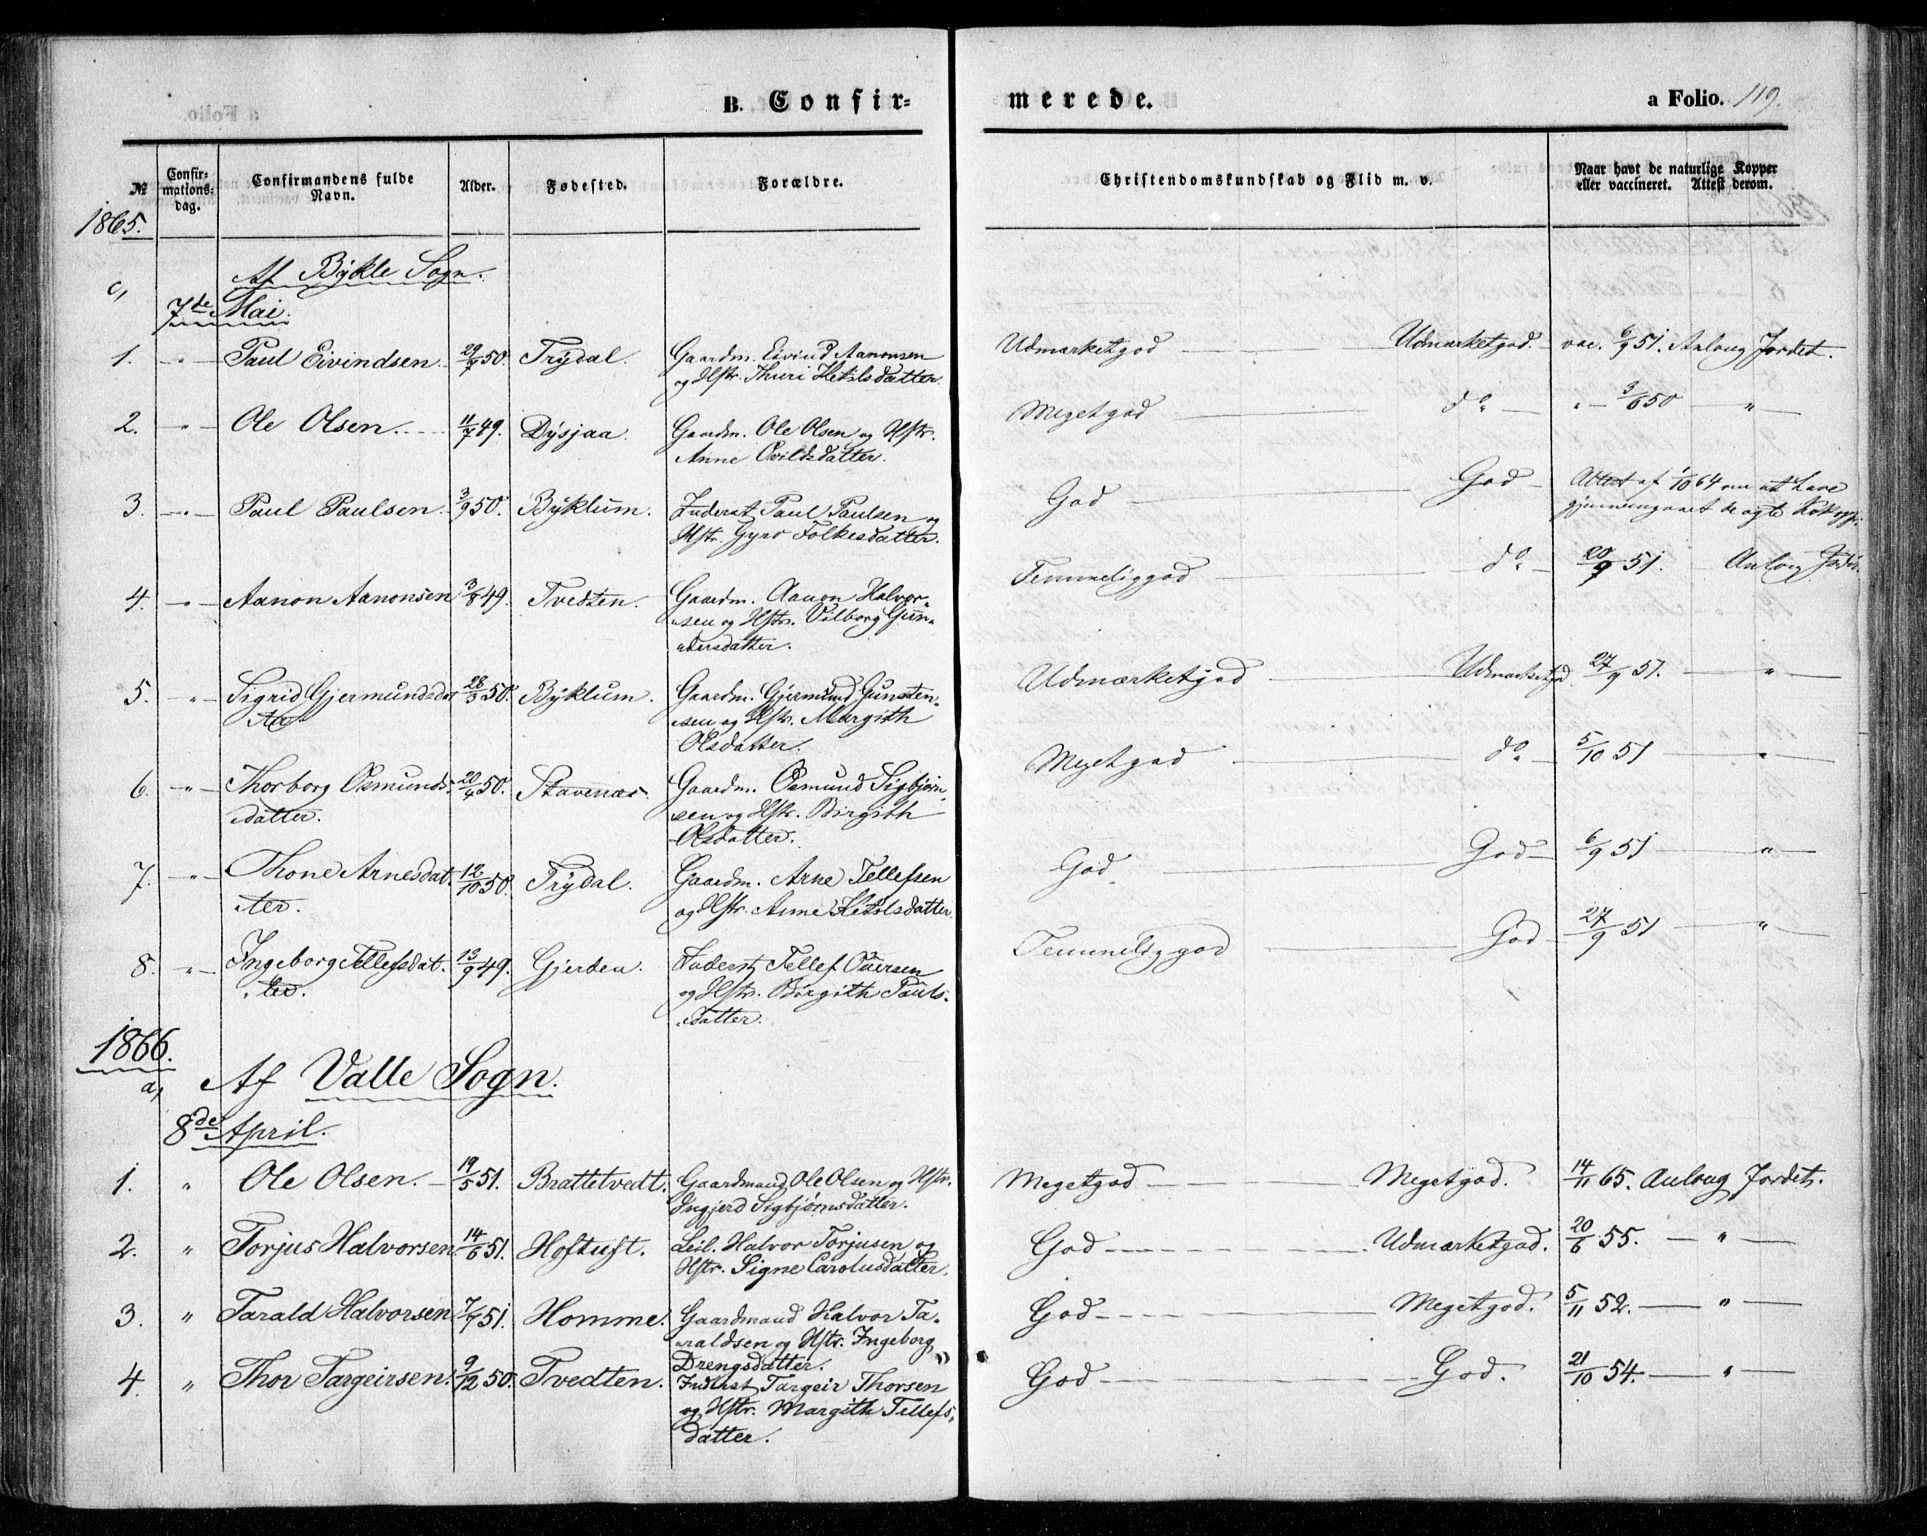 B. Confir-
merede.
a Folio. 119.
№
Confir-
mations-
dag.
Confirmandens fulde
Navn.
Alder.
Fødested.
Forældre.
Christendomskundskab og Flid m. v.
Naar havt de naturlige Kopper
eller vaccineret. Attest derom.
1865.
c, Af Bykle Sogn.
7de Mai.
1. -"- Paul Eivindsen. 29/7 50. Trydal. Gaardm. Eivind Aanonsen
og Hstr. Thuri Ketilsdatter.
Udmærketgod — Udmærketgod. vac. 6/9 51. Auloug Jordet.
2. -"- Ole Olsen. 11/7 49. Dysjaa. Gaardm. Ole Olsen og Hstr.
Anne Ovildsdatter.
Megetgod — do — " — 3/6 50 — " —
3. -"- Paul Paulsen. 3/9 50. Byklum. Inderst Paul Paulsen og
Hstr. Gyro Folkesdatter.
God — God — Attest af 1/10 64 om at have
gjennemgaaet de ægte Kokopper
4. -"- Aanon Aanonsen 3/8 49. Tvedten. Gaardm. Aanon Halvor-
sen og Hstr. Vilborg Gun-
dersdatter.
Temmeliggod — do — 20/9 51. Auloug Jordet
5. -"- Sigrid Gjermundsdat-
ter 28/3 50. Byklum. Gaardm. Gjermund Gunsten-
sen og Hstr. Margith
Olsdatter.
Udmærketgod — Udmærketgod 27/9 51. — "
6. -"- Thorborg Osmunds-
datter. 20/4 50. Stavenæs. Gaardm. Osmund Sigbjørn-
sen og Hstr. Birgith
Olsdatter.
Megetgod — do — 5/10 51 — "
7. -"- Thone Arnesdat-
ter. 12/10 50. Trydal. Gaardm. Arne Tellefsen
og Hstr. Anne Ketilsdatter
God — God — 6/9 51 — " —
8. -"- Ingeborg Tellefsdat-
ter. 13/9 49. Gjerden. Inderst Tellef
og Hstr. Birgith Pauls-
datter.
Temmeliggod — God — 27/9 51 — " —
1866.
a, Af Valle Sogn.
8de April.
1. " Ole Olsen. 19/5 51. Brattetvedt. Gaardmand Ole Olsen og Hstr.
Ingjerd Sigbjørnsdatter.
Megetgod — Megetgod. 14/11 65. Auloug Jordet.
2. " Torjus Halvorsen. 14/6 51. Hoftuft. Leil. Halvor Torjusen og
Hstr. Signe Carolusdatter.
God — Udmærketgod. 20/6 55. — " —
3. " Tarald Halvorsen 7/7 51. Homme. Gaardmand Halvor Ta-
raldsen og Hstr. Ingeborg
Drengsdatter.
God — Megetgod. 5/11 52. — " —
4. " Thor Targeirsen. 9/12 50. Tvedten. Inderst Targeir Thorsen
og Hstr. Margith Tellefs-
datter.
God — God. 21/10 54. — " —